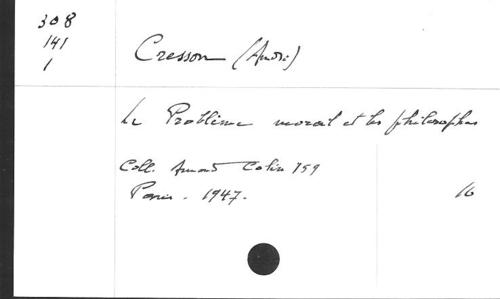 308
141
1
Cresson (André)
Le Problème moral et les philosophes
Coll. Armand Colin 159
Paris. 1947.
16